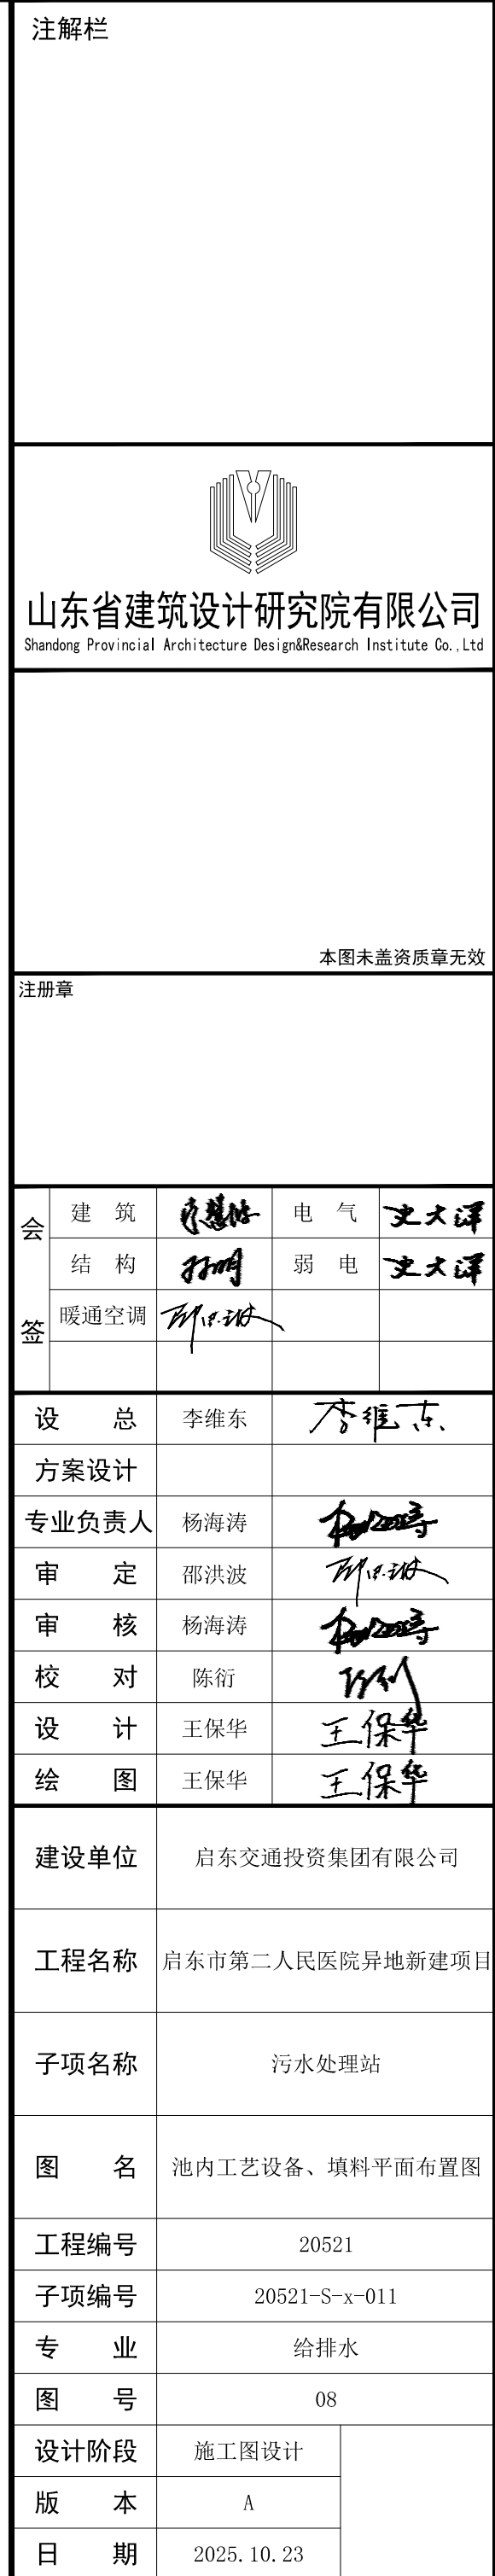 注解栏
山东省建筑设计研究院有限公司
Shandong Provincial Architecture Design&Research Institute Co.,Ltd
本图未盖资质章无效
注册章
会签
建 筑 电 气 史大泽
结 构 孙明 弱 电 史大泽
暖通空调 邵洪波
设 总 李维东 李维东
方案设计
专业负责人 杨海涛 杨海涛
审 定 邵洪波 邵洪波
审 核 杨海涛 杨海涛
校 对 陈衍
设 计 王保华 王保华
绘 图 王保华 王保华
建设单位 启东交通投资集团有限公司
工程名称 启东市第二人民医院异地新建项目
子项名称 污水处理站
图 名 池内工艺设备、填料平面布置图
工程编号 20521
子项编号 20521-S-x-011
专 业 给排水
图 号 08
设计阶段 施工图设计
版 本 A
日 期 2025.10.23